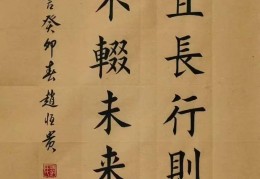 且長行則
不輟未来
言癸卯春趙恒貴